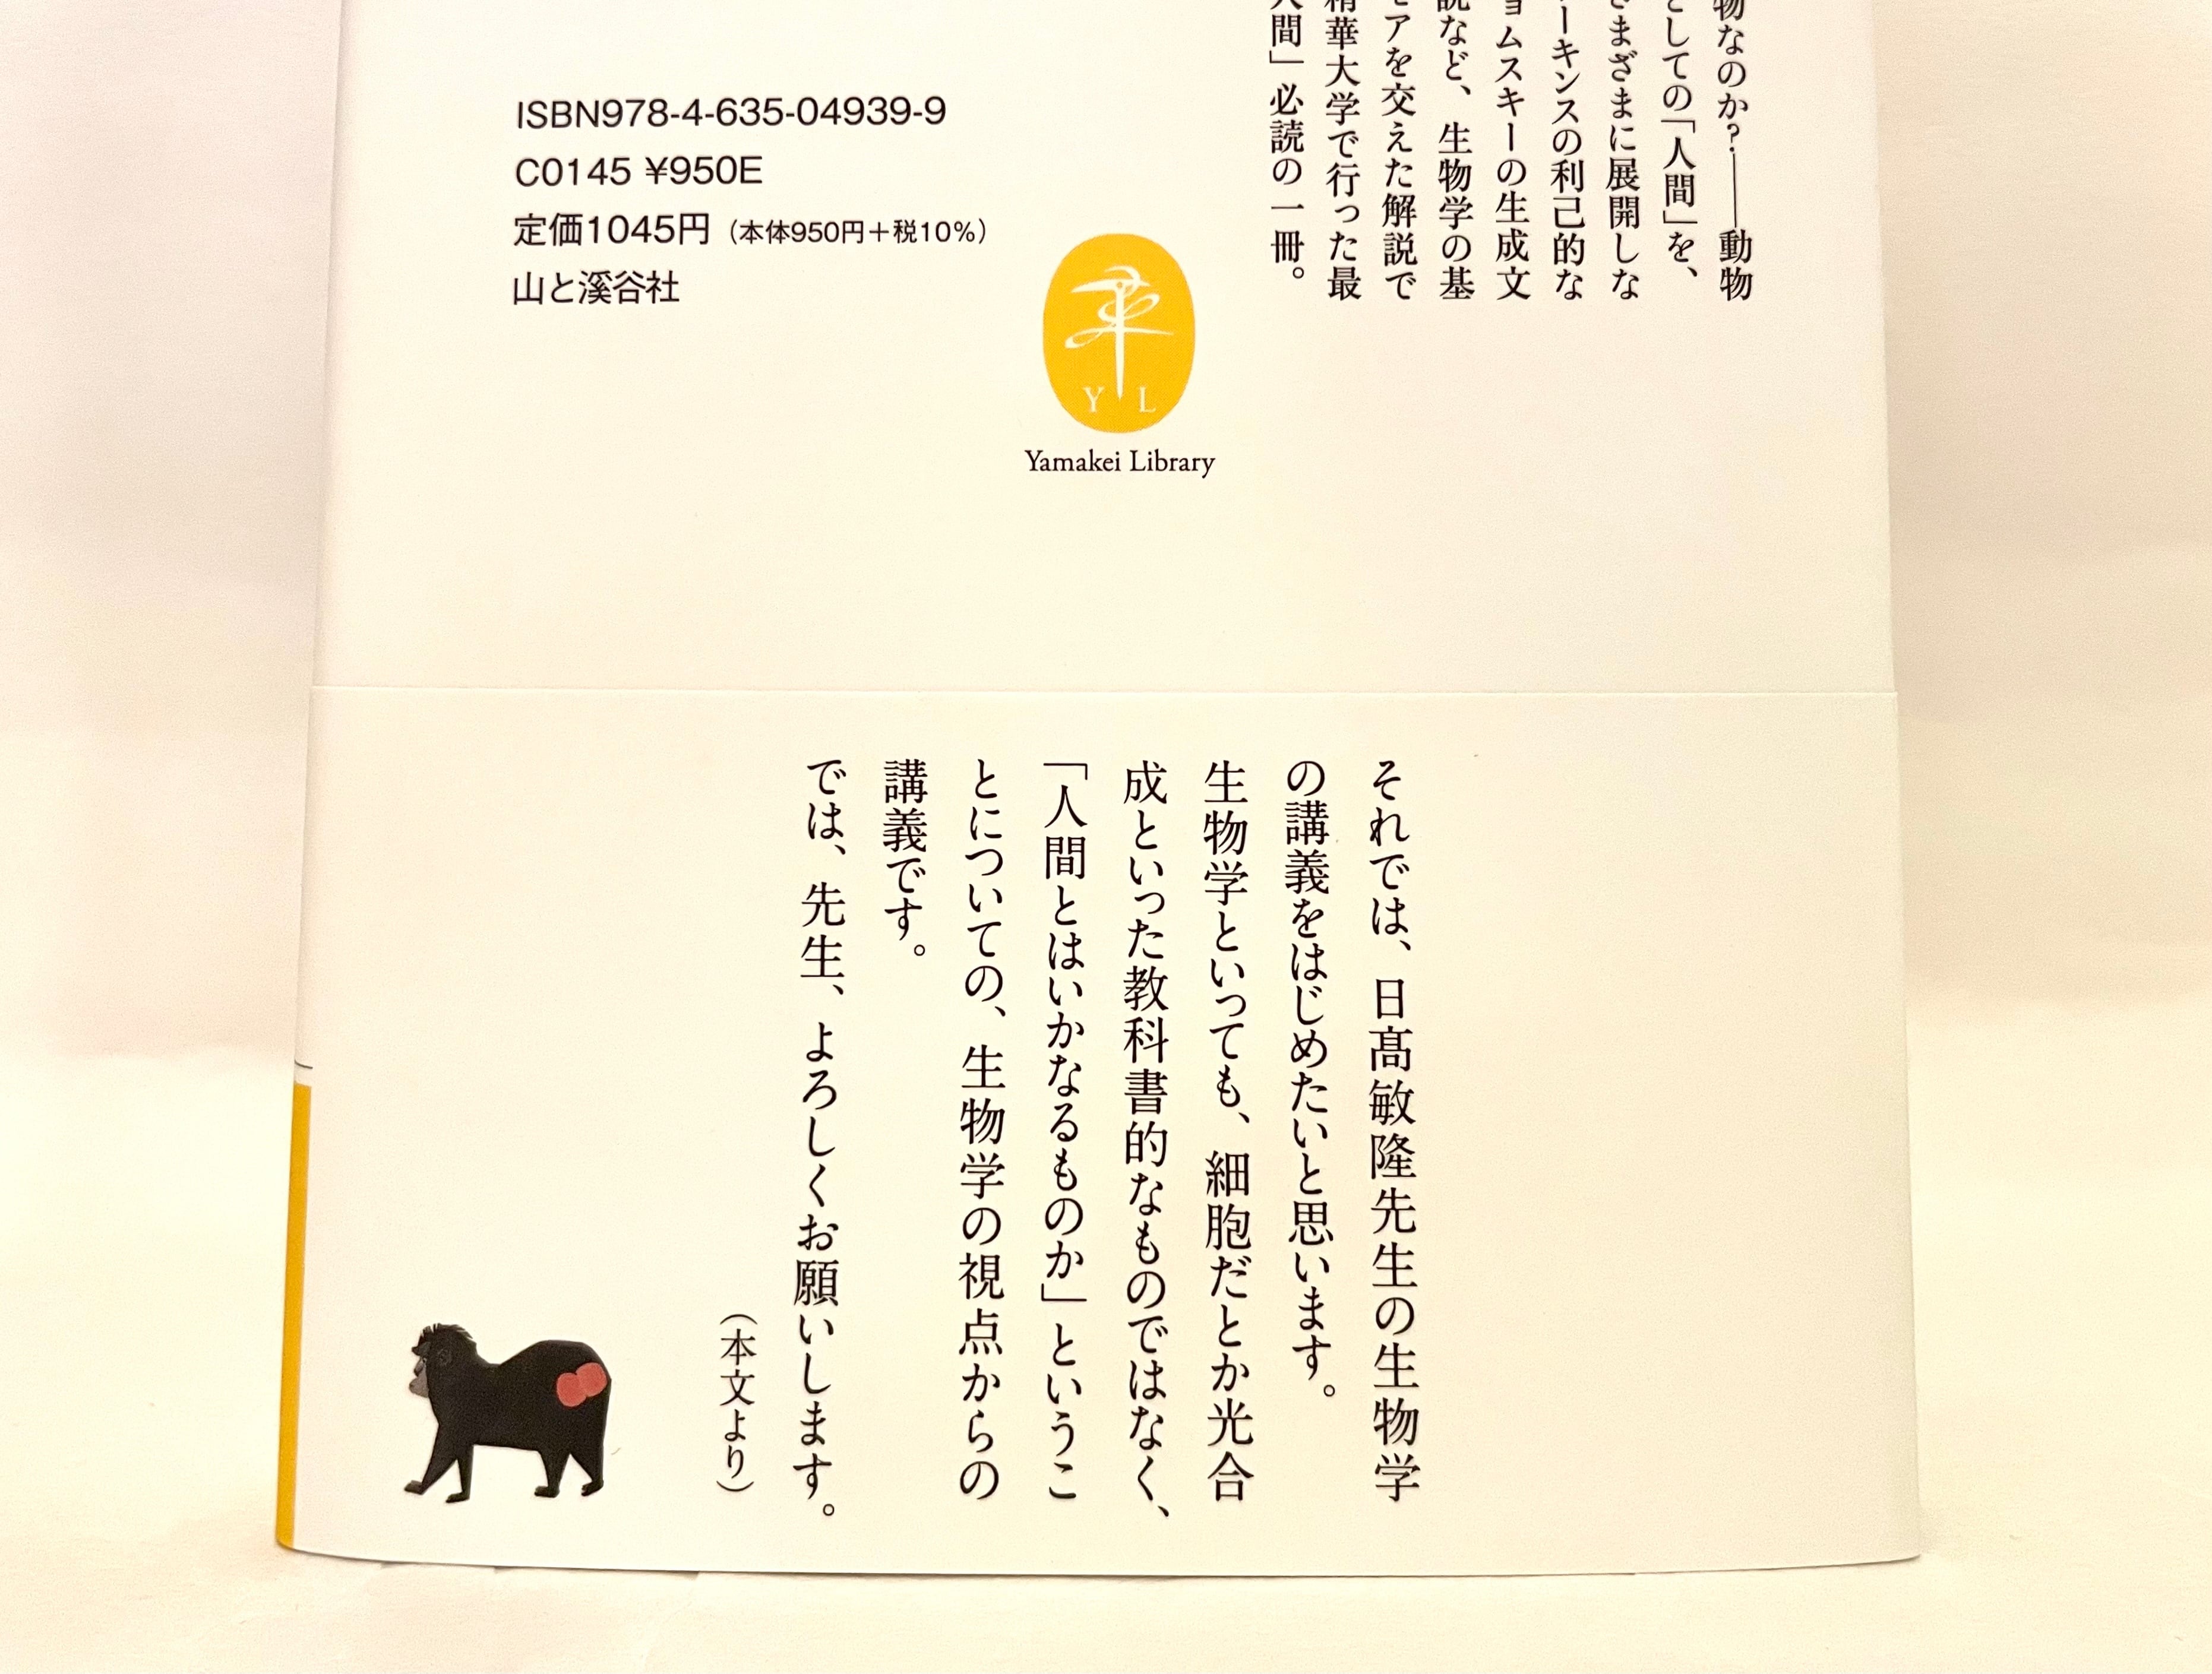 物なのか?――動物
としての「人間」を、
さまざまに展開しな
ーキンスの利己的な
ョムスキーの生成文
説など、生物学の基
モアを交えた解説で
精華大学で行った最
人間」必読の一冊。
ISBN978-4-635-04939-9
C0145 ¥950E
定価1045円(本体950円+税10%)
山と溪谷社
Y L
Yamakei Library
それでは、日髙敏隆先生の生物学
の講義をはじめたいと思います。
生物学といっても、細胞だとか光合
成といった教科書的なものではなく、
「人間とはいかなるものか」というこ
とについての、生物学の視点からの
講義です。
では、先生、よろしくお願いします。
(本文より)